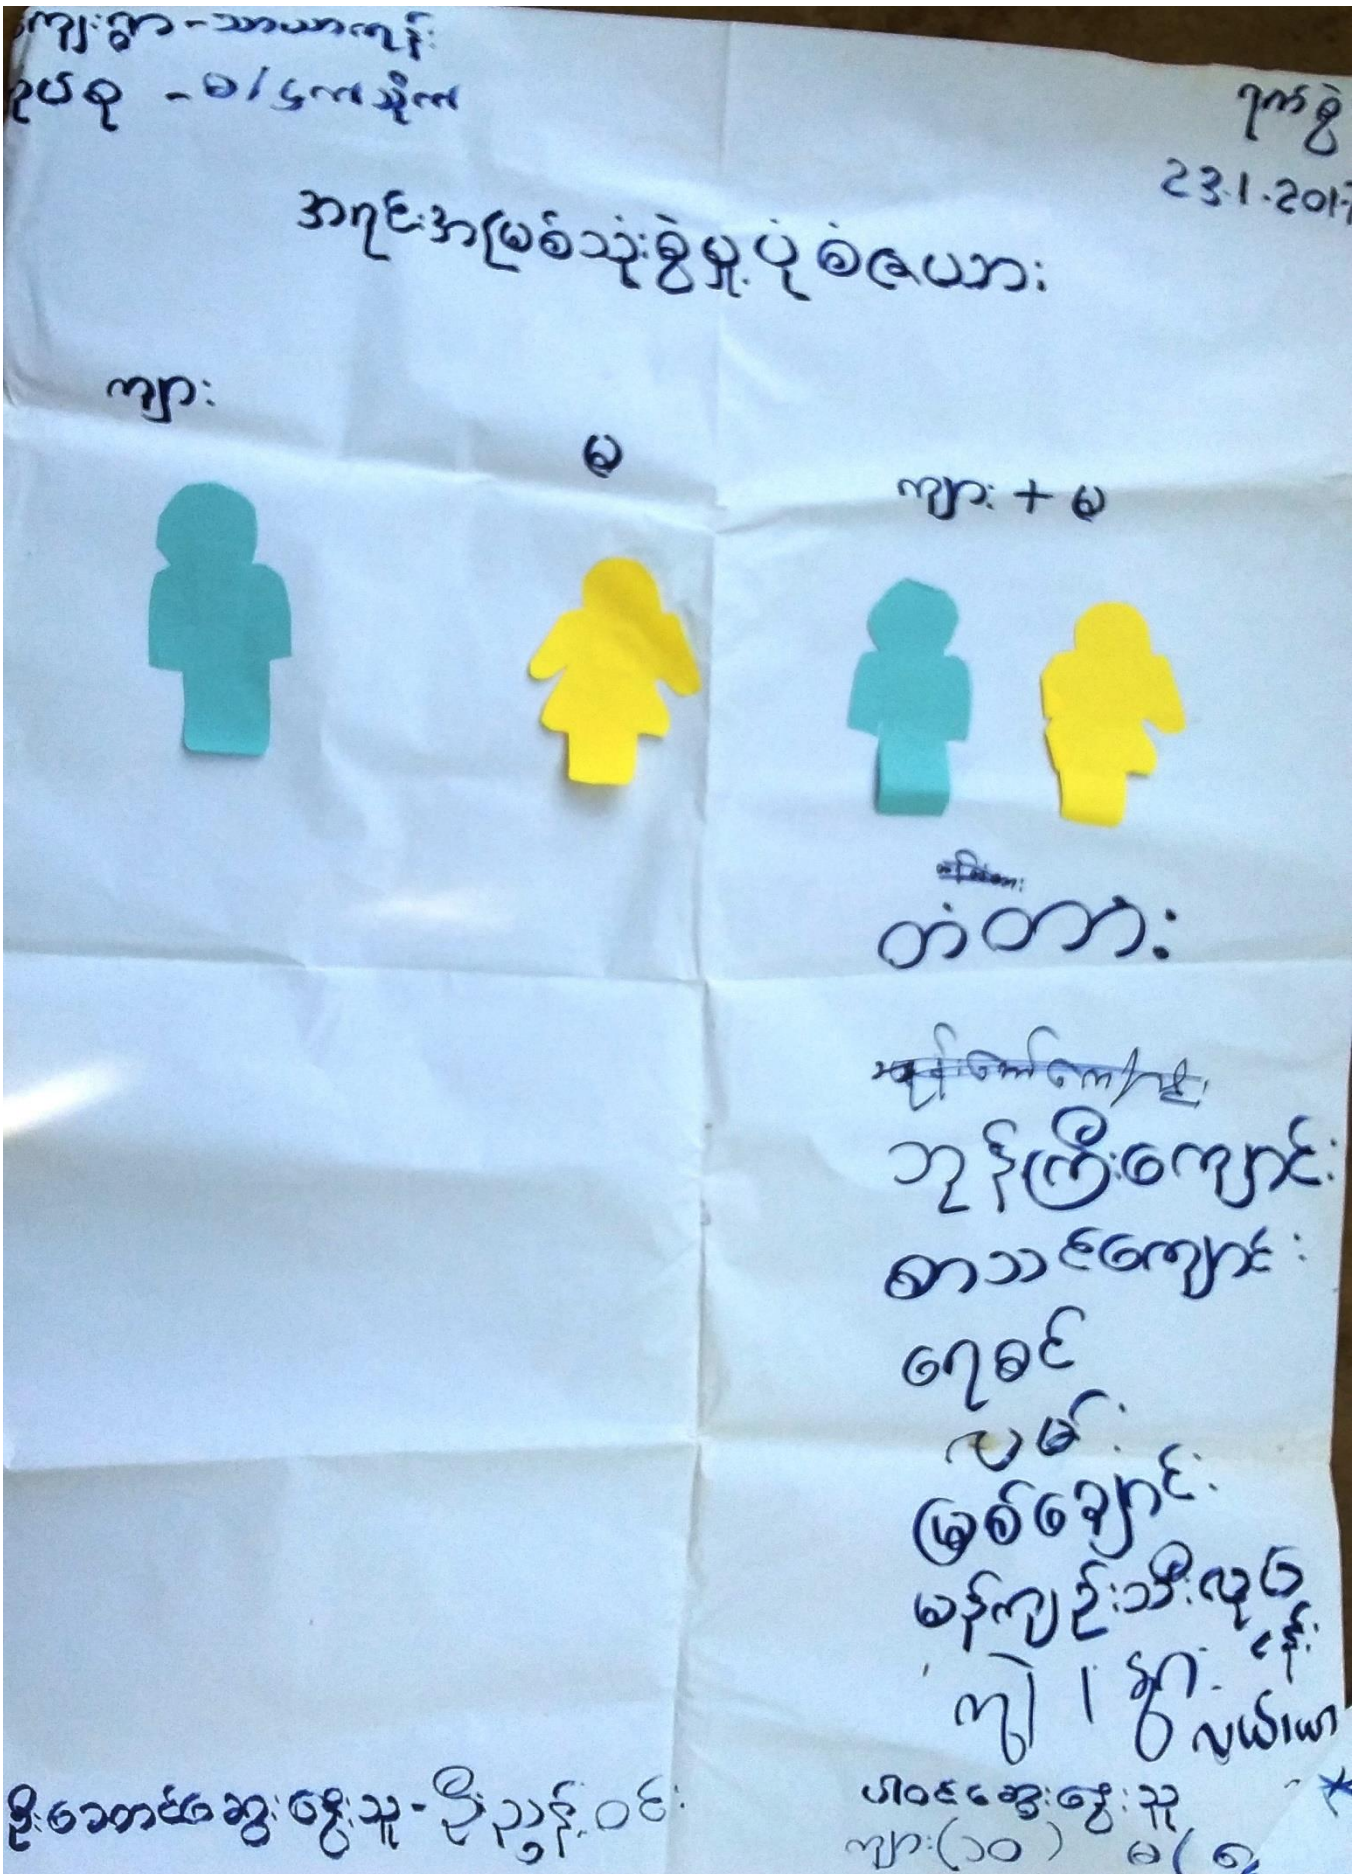 ကျေးရွာ-သာယာကုန်း
ရက်စွဲ
23.1.2017
အရင်းအမြစ်သုံးစွဲမှု ပုံစံဇယား
ကျား
မ
ကျား + မ
တံတား
ဘုန်ကြီးကျောင်း
စာသင်ကျောင်း
ရေစင်
လမ်း
မြစ်ချောင်း
မန်ကျဉ်းသီးလုပ်ငန်း
ကျွဲ၊ နွား
လယ်ယာ
ဦးဆောင်ဆွေးနွေးသူ-ဦးညွန့်ဝင်း
ပါဝင်ဆွေးနွေးသူ
ကျား(၁၀) မ(